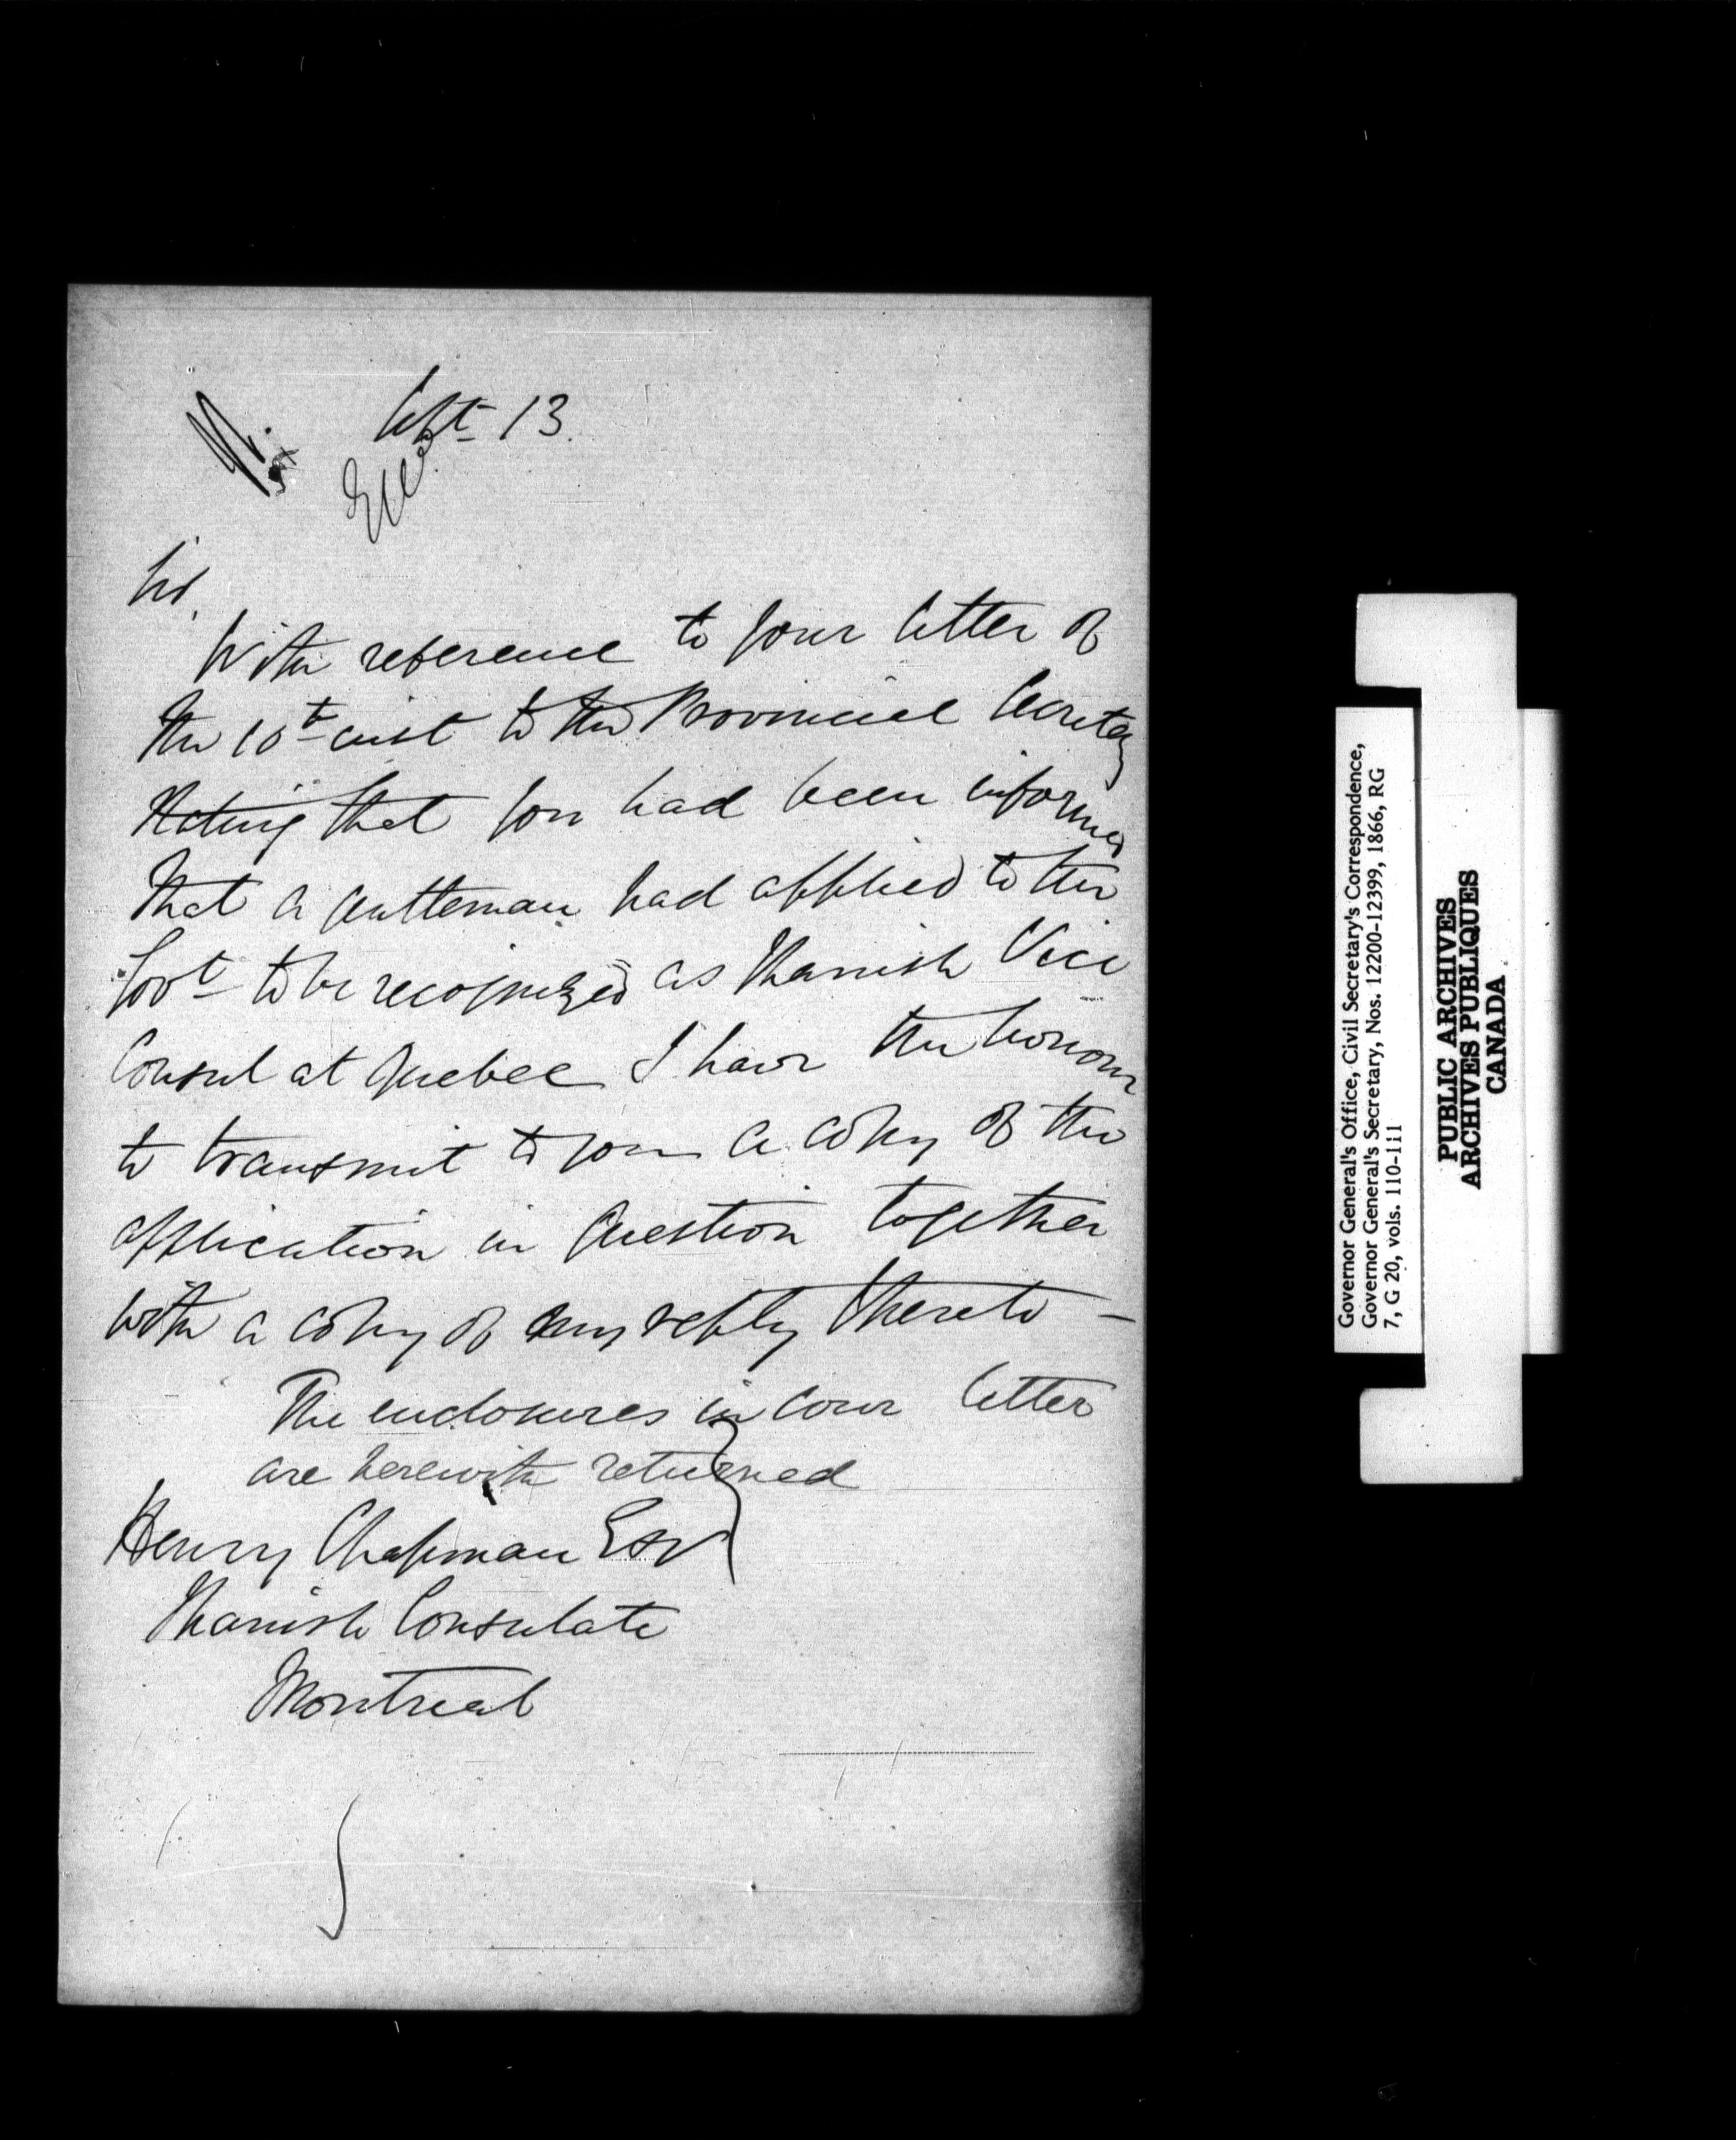 Sept 13.
Sir,
With reference to your letter of
the 10th inst to the Provincial Secretary
stating that you had been informed
that a gentleman had applied to the
Govt to be recognized as Spanish Vice
Consul at Quebec I have the honour
to transmit to you a copy of the
application in question together
with a copy of my reply thereto —
The enclosures in your letter
are herewith returned
Henry Chapman Esqr
Spanish Consulate
Montreal
Governor General's Office, Civil Secretary's Correspondence,
Governor General's Secretary, Nos. 12200-12399, 1866, RG
7, G 20, vols. 110-111
PUBLIC ARCHIVES
ARCHIVES PUBLIQUES
CANADA